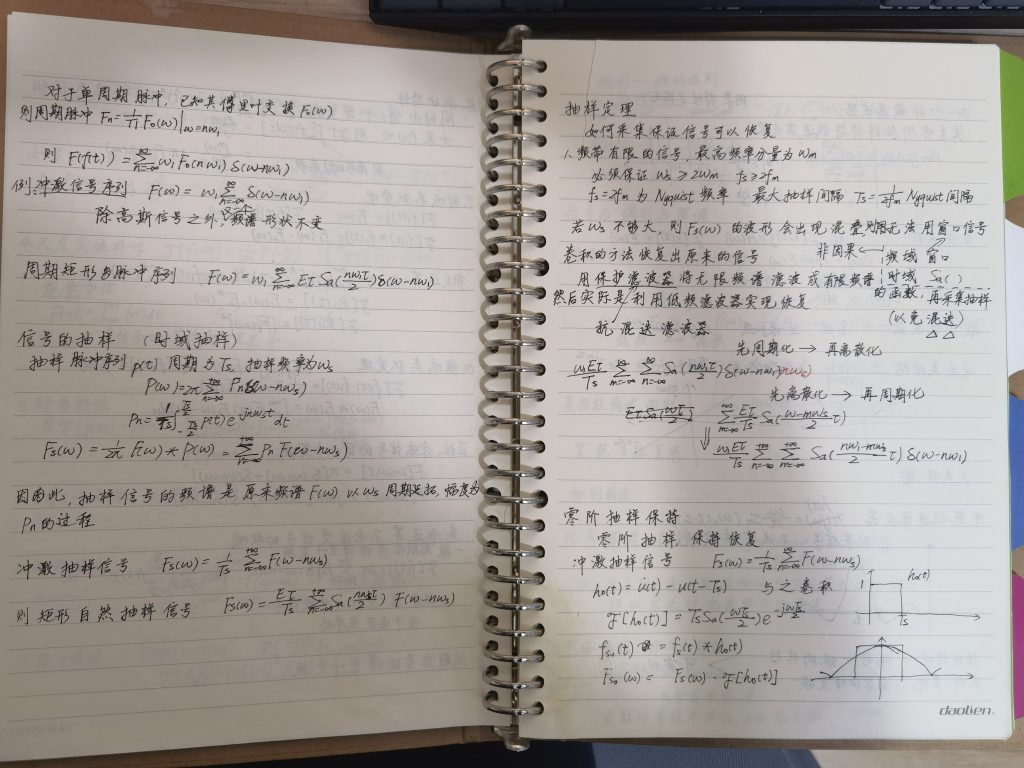 对于单周期脉冲, 已知其傅里叶变换 F₀(ω)
则周期脉冲 Fn = 1/T₁ F₀(ω)|ω=nω₁
则 F(f(t)) = Σ(n=-∞→+∞) ω₁ F₀(nω₁) δ(ω-nω₁)
例 冲激信号序列 F(ω) = ω₁ Σ(n=-∞→∞) δ(ω-nω₁)
除高斯信号之外, 频谱形状不变
周期矩形脉冲序列 F(ω) = ω₁ Σ(n=-∞→∞) Eτ Sa(nω₁τ/2) δ(ω-nω₁)
信号的抽样 (时域抽样)
抽样脉冲序列 p(t) 周期为 Ts 抽样频率为 ωs
P(ω) = 2π Σ(n=-∞→+∞) Pn δ(ω-nωs)
Pn = 1/Ts ∫(-Ts/2→Ts/2) p(t) e^-jnωst dt
Fs(ω) = 1/2π F(ω) * P(ω) = Σ(n=-∞→+∞) Pn F(ω-nωs)
因此, 抽样信号的频谱是原来频谱 F(ω) 以 ωs 周期延拓, 幅度为
Pn 的过程
冲激抽样信号 Fs(ω) = 1/Ts Σ(n=-∞→+∞) F(ω-nωs)
则矩形自然抽样信号 Fs(ω) = Eτ/Ts Σ(n=-∞→+∞) Sa(nωsτ/2) F(ω-nωs)
抽样定理
如何采集保证信号可以恢复
1. 频带有限的信号, 最高频率分量为 ωm
必须保证 ωs ≥ 2ωm fs ≥ 2fm
fs = 2fm 为 Nyquist 频率 最大抽样间隔 Ts = 1/2fm Nyquist 间隔
若 ωs 不够大, 则 Fs(ω) 的波形会出现混叠 则无法用窗口信号
卷积的方法恢复出原来的信号 非因果 ← 频域 窗口
用保护滤波器将无限频谱滤波成有限频谱 时域 Sa( )
然后实际是利用低频滤波器实现恢复 的函数, 再采集抽样
(以免混迭)
抗混迭滤波器
先周期化 → 再离散化
ω₁Eτ/Ts Σ(m=-∞→∞) Σ(n=-∞→∞) Sa(nω₁τ/2) δ(ω-nω₁-mωs)
先离散化 → 再周期化
Σ(n=-∞→+∞) Eτ/Ts Sa((ω-mωs)/2 τ)
⇓ ω₁Eτ/Ts Σ(n=-∞→+∞) Σ(m=-∞→+∞) Sa((nω₁-mωs)/2 τ) δ(ω-nω₁)
零阶抽样保持
零阶抽样 保持恢复
冲激抽样信号 Fs(ω) = 1/Ts Σ(n=-∞→∞) F(ω-nωs)
h₀(t) = u(t) - u(t-Ts) 与之卷积
1 h₀(t) Ts
F[h₀(t)] = Ts Sa(ωTs/2) e^-jωTs/2
fs₀(t) = fs(t) * h₀(t)
Fs₀(ω) = Fs(ω) · F[h₀(t)]
daolien